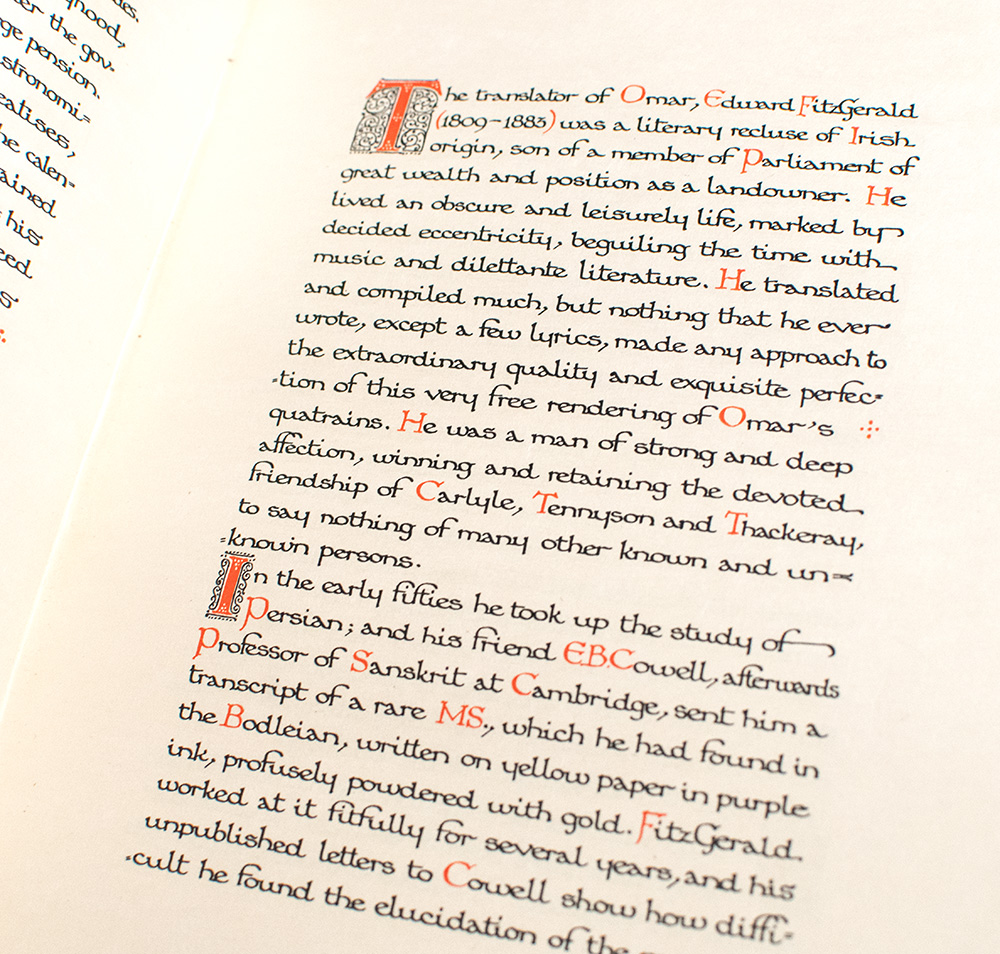 des.
hood,
er the gov-
ge pension.
stronomi=
eatises,
he calen-
ained
his
eed
s
The translator of Omar, Edward FitzGerald
(1809-1883) was a literary recluse of Irish
origin, son of a member of Parliament of
great wealth and position as a landowner. He
lived an obscure and leisurely life, marked by
decided eccentricity, beguiling the time with
music and dilettante literature. He translated
and compiled much, but nothing that he ever
wrote, except a few lyrics, made any approach to
the extraordinary quality and exquisite perfec-
-tion of this very free rendering of Omar's
quatrains. He was a man of strong and deep
affection, winning and retaining the devoted
friendship of Carlyle, Tennyson and Thackeray,
to say nothing of many other known and un=
=known persons.
In the early fifties he took up the study of
Persian; and his friend E.B.Cowell, afterwards
Professor of Sanskrit at Cambridge, sent him a
transcript of a rare MS., which he had found in
the Bodleian, written on yellow paper in purple
ink, profusely powdered with gold. FitzGerald
worked at it fitfully for several years, and his
unpublished letters to Cowell show how diffi=
-cult he found the elucidation of the